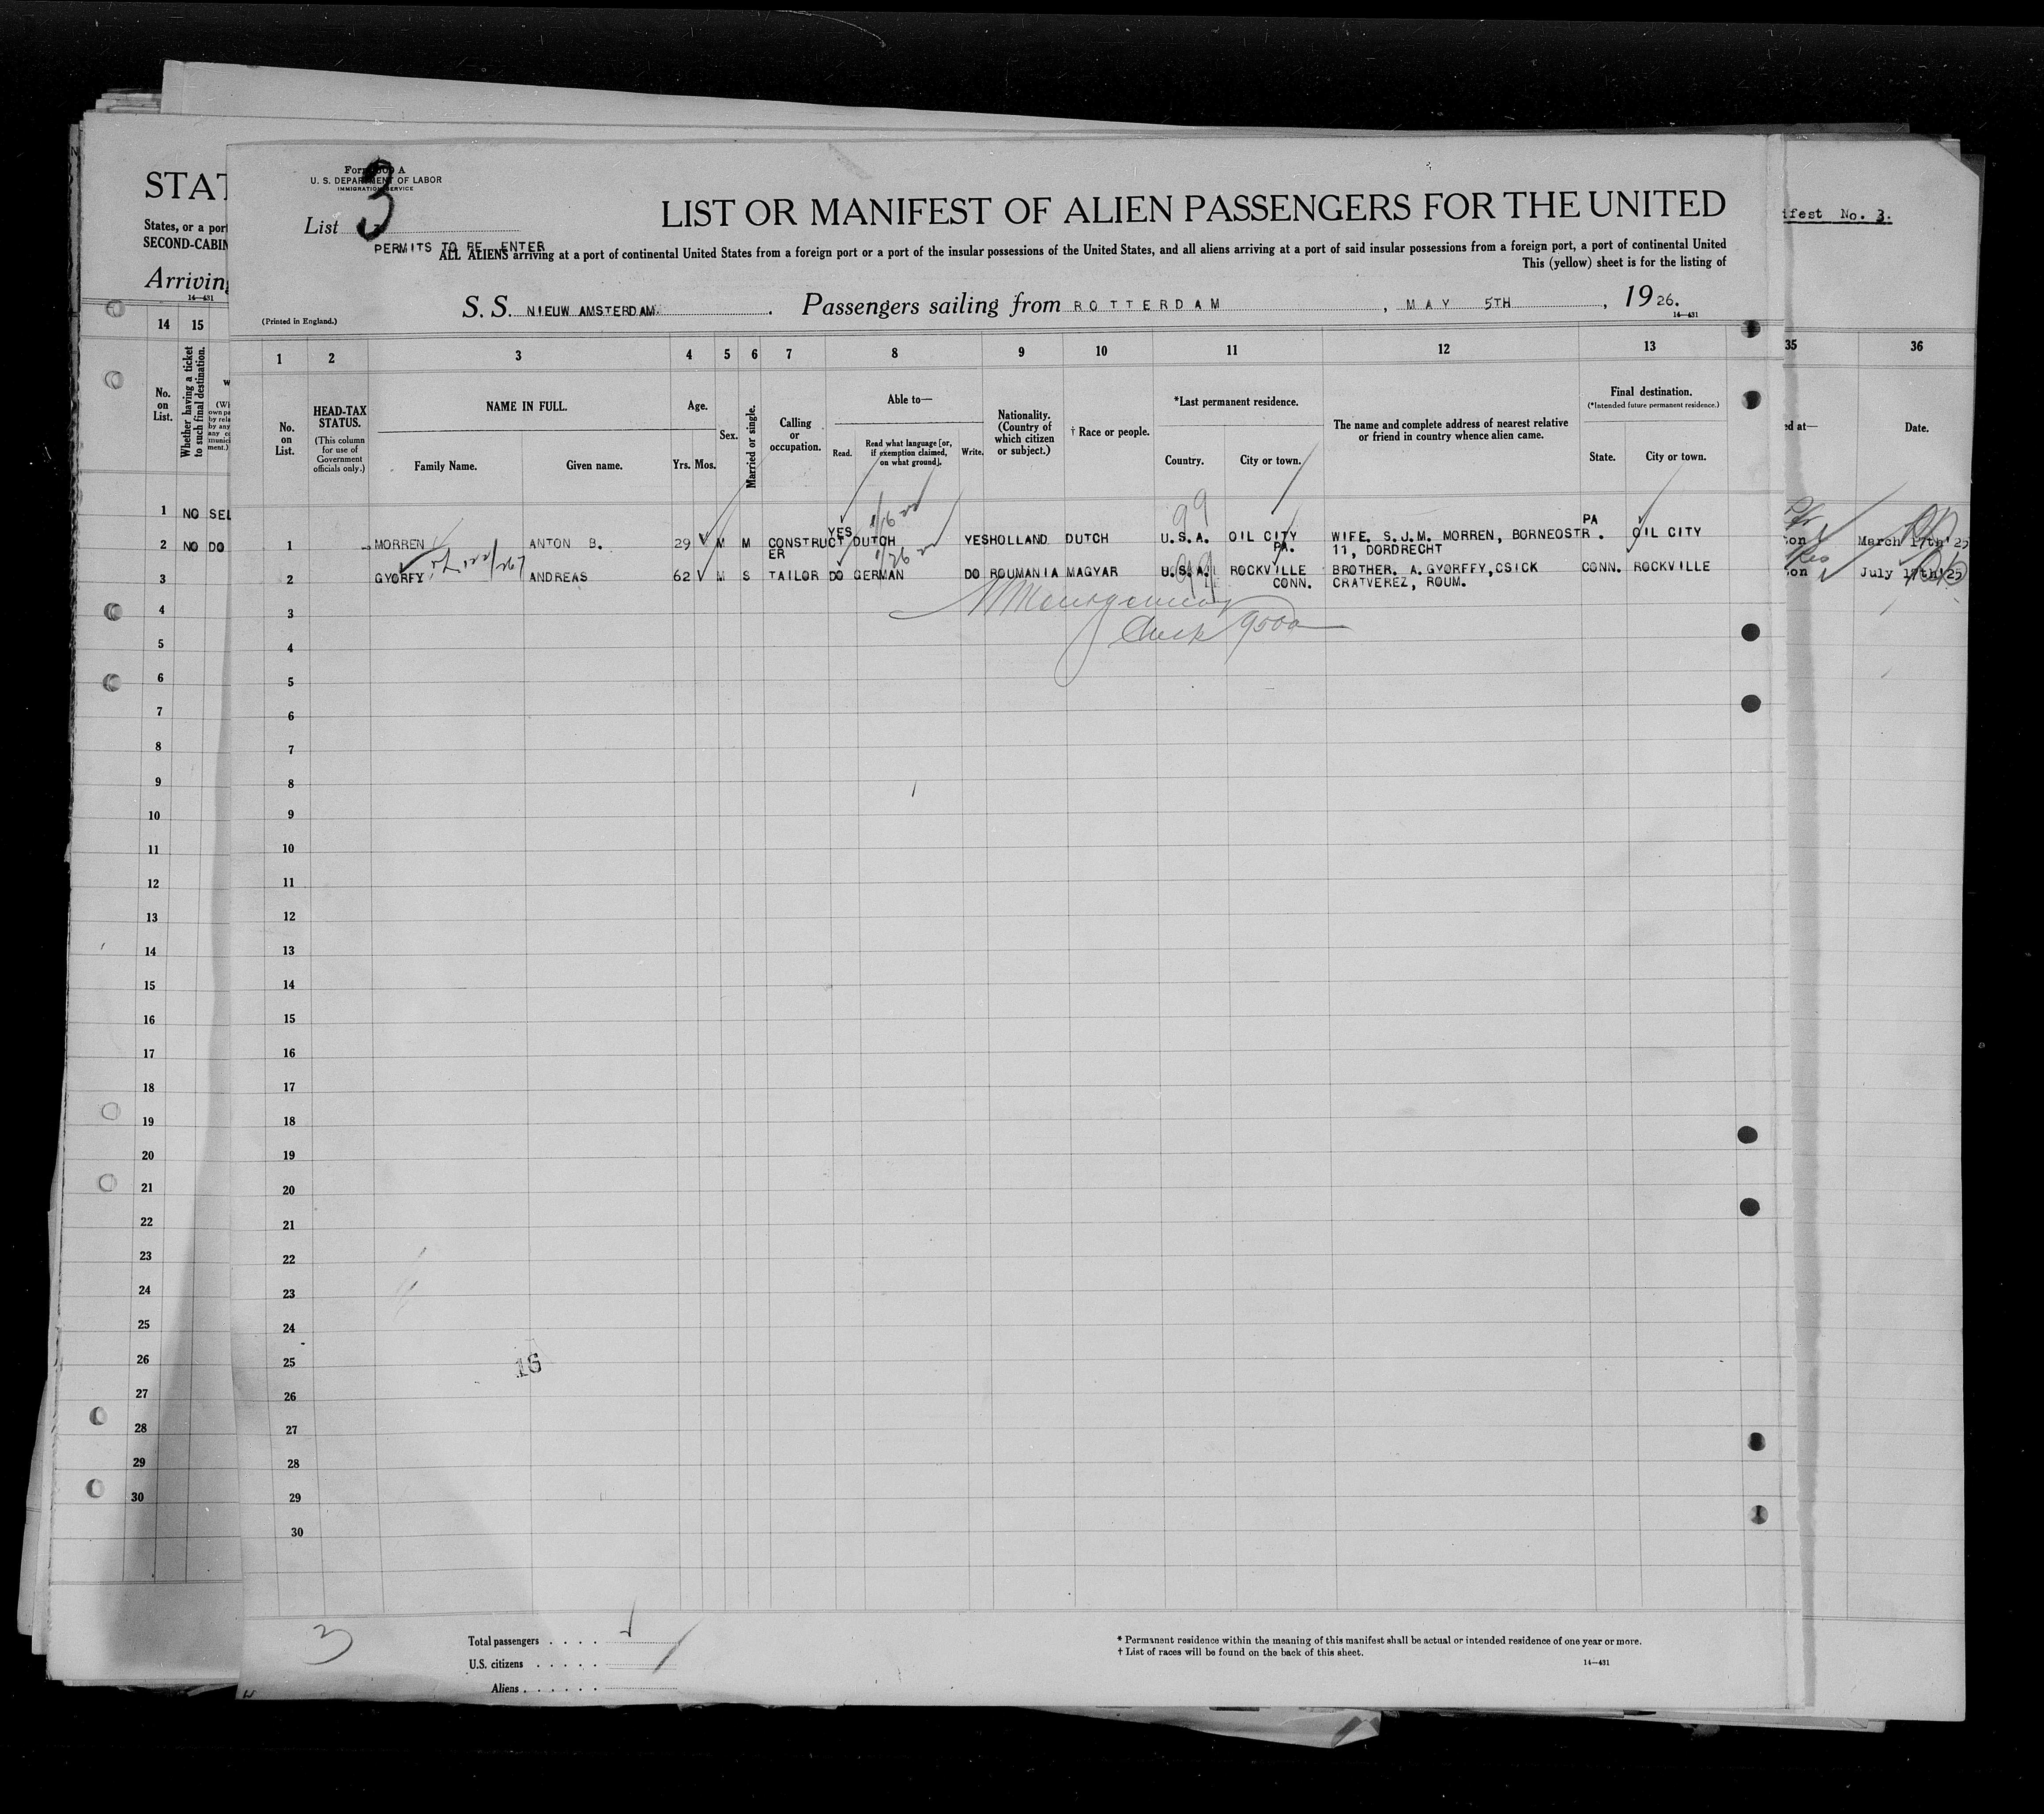 STAT
States, or a port
SECOND-CABIN
Arriving
14—431
14 15
No. on List.
Whether having a ticket to such final destination.
1 NO SEL
2 NO DO
3
4
5
6
7
8
9
10
11
12
13
14
15
16
17
18
19
20
21
22
23
24
25
26
27
28
29
30
U. S. DEPARTMENT OF LABOR
IMMIGRATION SERVICE
List 3
LIST OR MANIFEST OF ALIEN PASSENGERS FOR THE UNITED
PERMITS TO RE ENTER
ALL ALIENS arriving at a port of continental United States from a foreign port or a port of the insular possessions of the United States, and all aliens arriving at a port of said insular possessions from a foreign port, a port of continental United
This (yellow) sheet is for the listing of
S. S. NIEUW AMSTERDAM. Passengers sailing from ROTTERDAM, MAY 5TH, 1926.
(Printed in England.)
14—431
1 2 3 4 5 6 7 8 9 10 11 12 13
No. on List.
HEAD-TAX STATUS.
(This column for use of Government officials only.)
NAME IN FULL.
Family Name. Given name.
Age.
Yrs. Mos.
Sex.
Married or single.
Calling or occupation.
Able to—
Read. Read what language [or, if exemption claimed, on what ground]. Write.
Nationality. (Country of which citizen or subject.)
† Race or people.
*Last permanent residence.
Country. City or town.
The name and complete address of nearest relative or friend in country whence alien came.
Final destination.
(*Intended future permanent residence.)
State. City or town.
1 MORREN ANTON B. 29 M M CONSTRUCTER YES DUTCH YES HOLLAND DUTCH U.S.A. OIL CITY PA. WIFE. S.J.M. MORREN, BORNEOSTR. 11, DORDRECHT PA OIL CITY
2 GYORFY ANDREAS 62 M S TAILOR DO GERMAN DO ROUMANIA MAGYAR U.S.A. ROCKVILLE CONN. BROTHER. A. GYORFFY, CSICK CRATVEREZ, ROUM. CONN. ROCKVILLE
99
99
3
4
5
6
7
8
9
10
11
12
13
14
15
16
17
18
19
20
21
22
23
24
25
16
26
27
28
29
30
3
Total passengers
U.S. citizens
Aliens
* Permanent residence within the meaning of this manifest shall be actual or intended residence of one year or more.
† List of races will be found on the back of this sheet.
14—431
ifest No. 3.
35 36
ed at— Date.
on March 17th'25
on July 17th'25